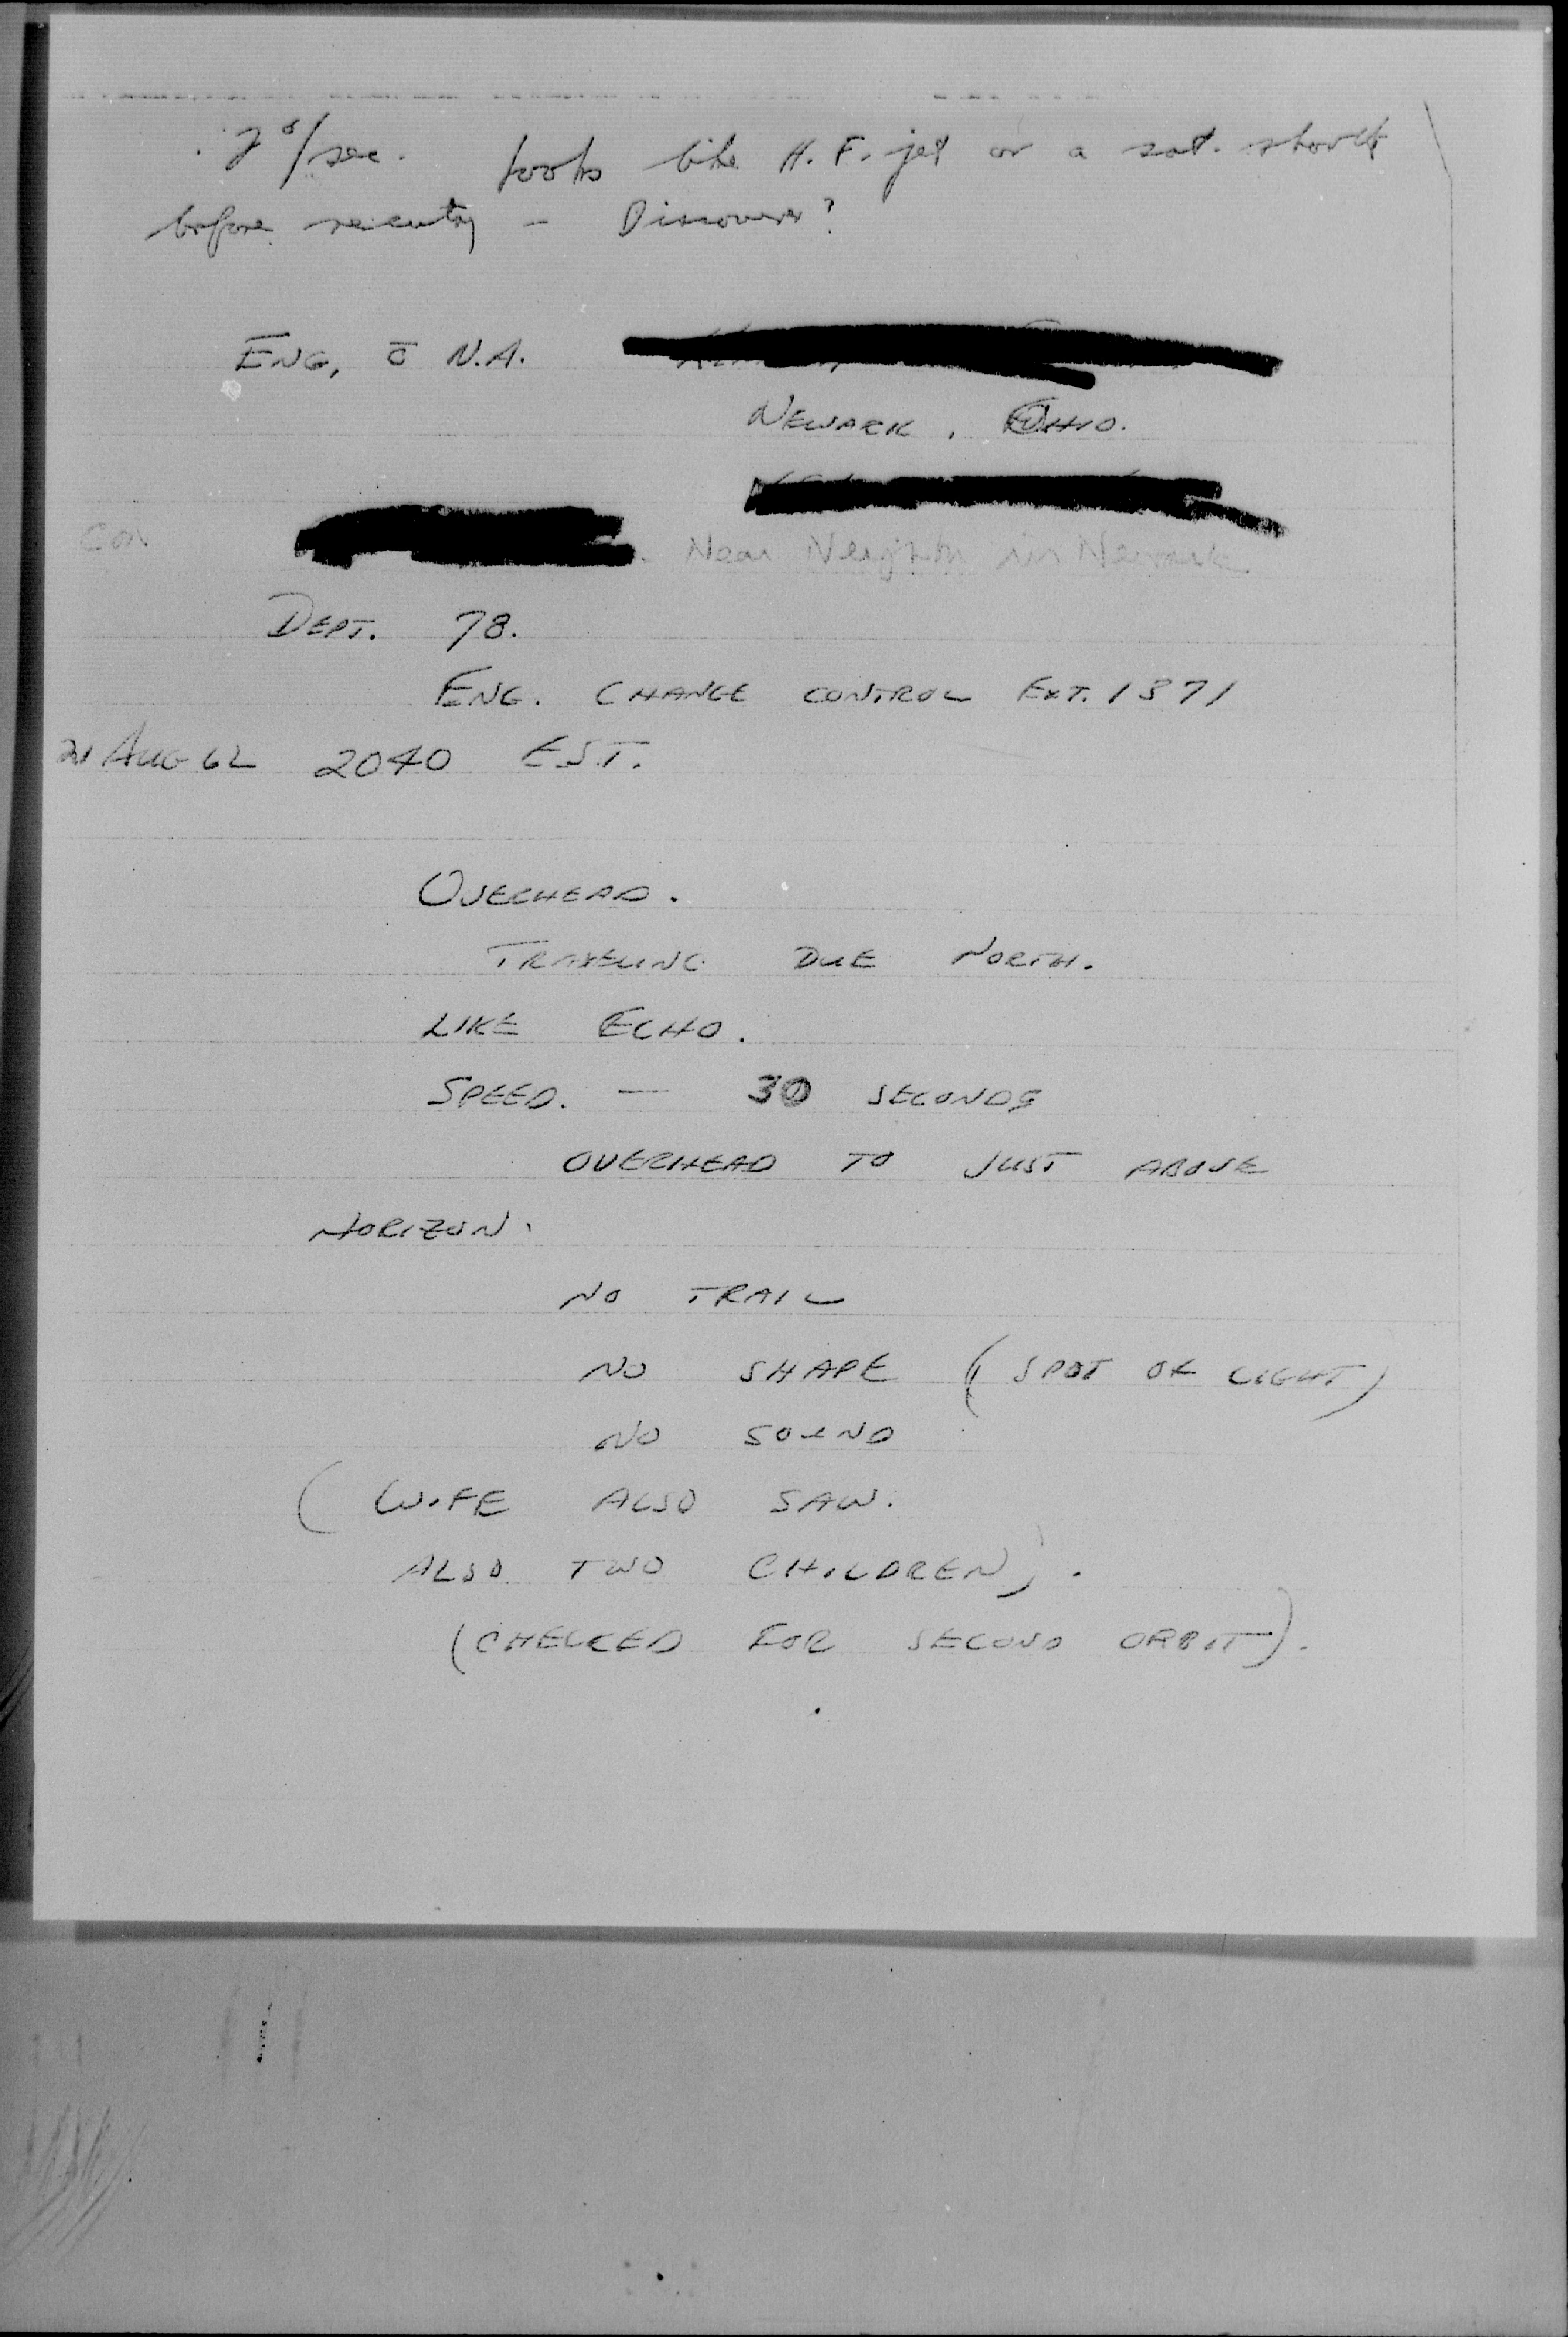 2°/sec. looks like H. F. jet or a sat. shortly
before reentry - Discoverer?
ENG, c̄ N.A.
NEWARK, OHIO.
Con
Near Neighbr in Newark
DEPT. 78.
ENG. CHANGE CONTROL EXT. 1371
21 AUG 62 2040 EST.
OVERHEAD.
TRAVELING DUE NORTH.
LIKE ECHO.
SPEED. — 30 SECONDS
OVERHEAD TO JUST ABOVE
HORIZON.
NO TRAIL
NO SHAPE (SPOT OF LIGHT)
NO SOUND
(WIFE ALSO SAW.
ALSO TWO CHILDREN).
(CHECKED FOR SECOND ORBIT).